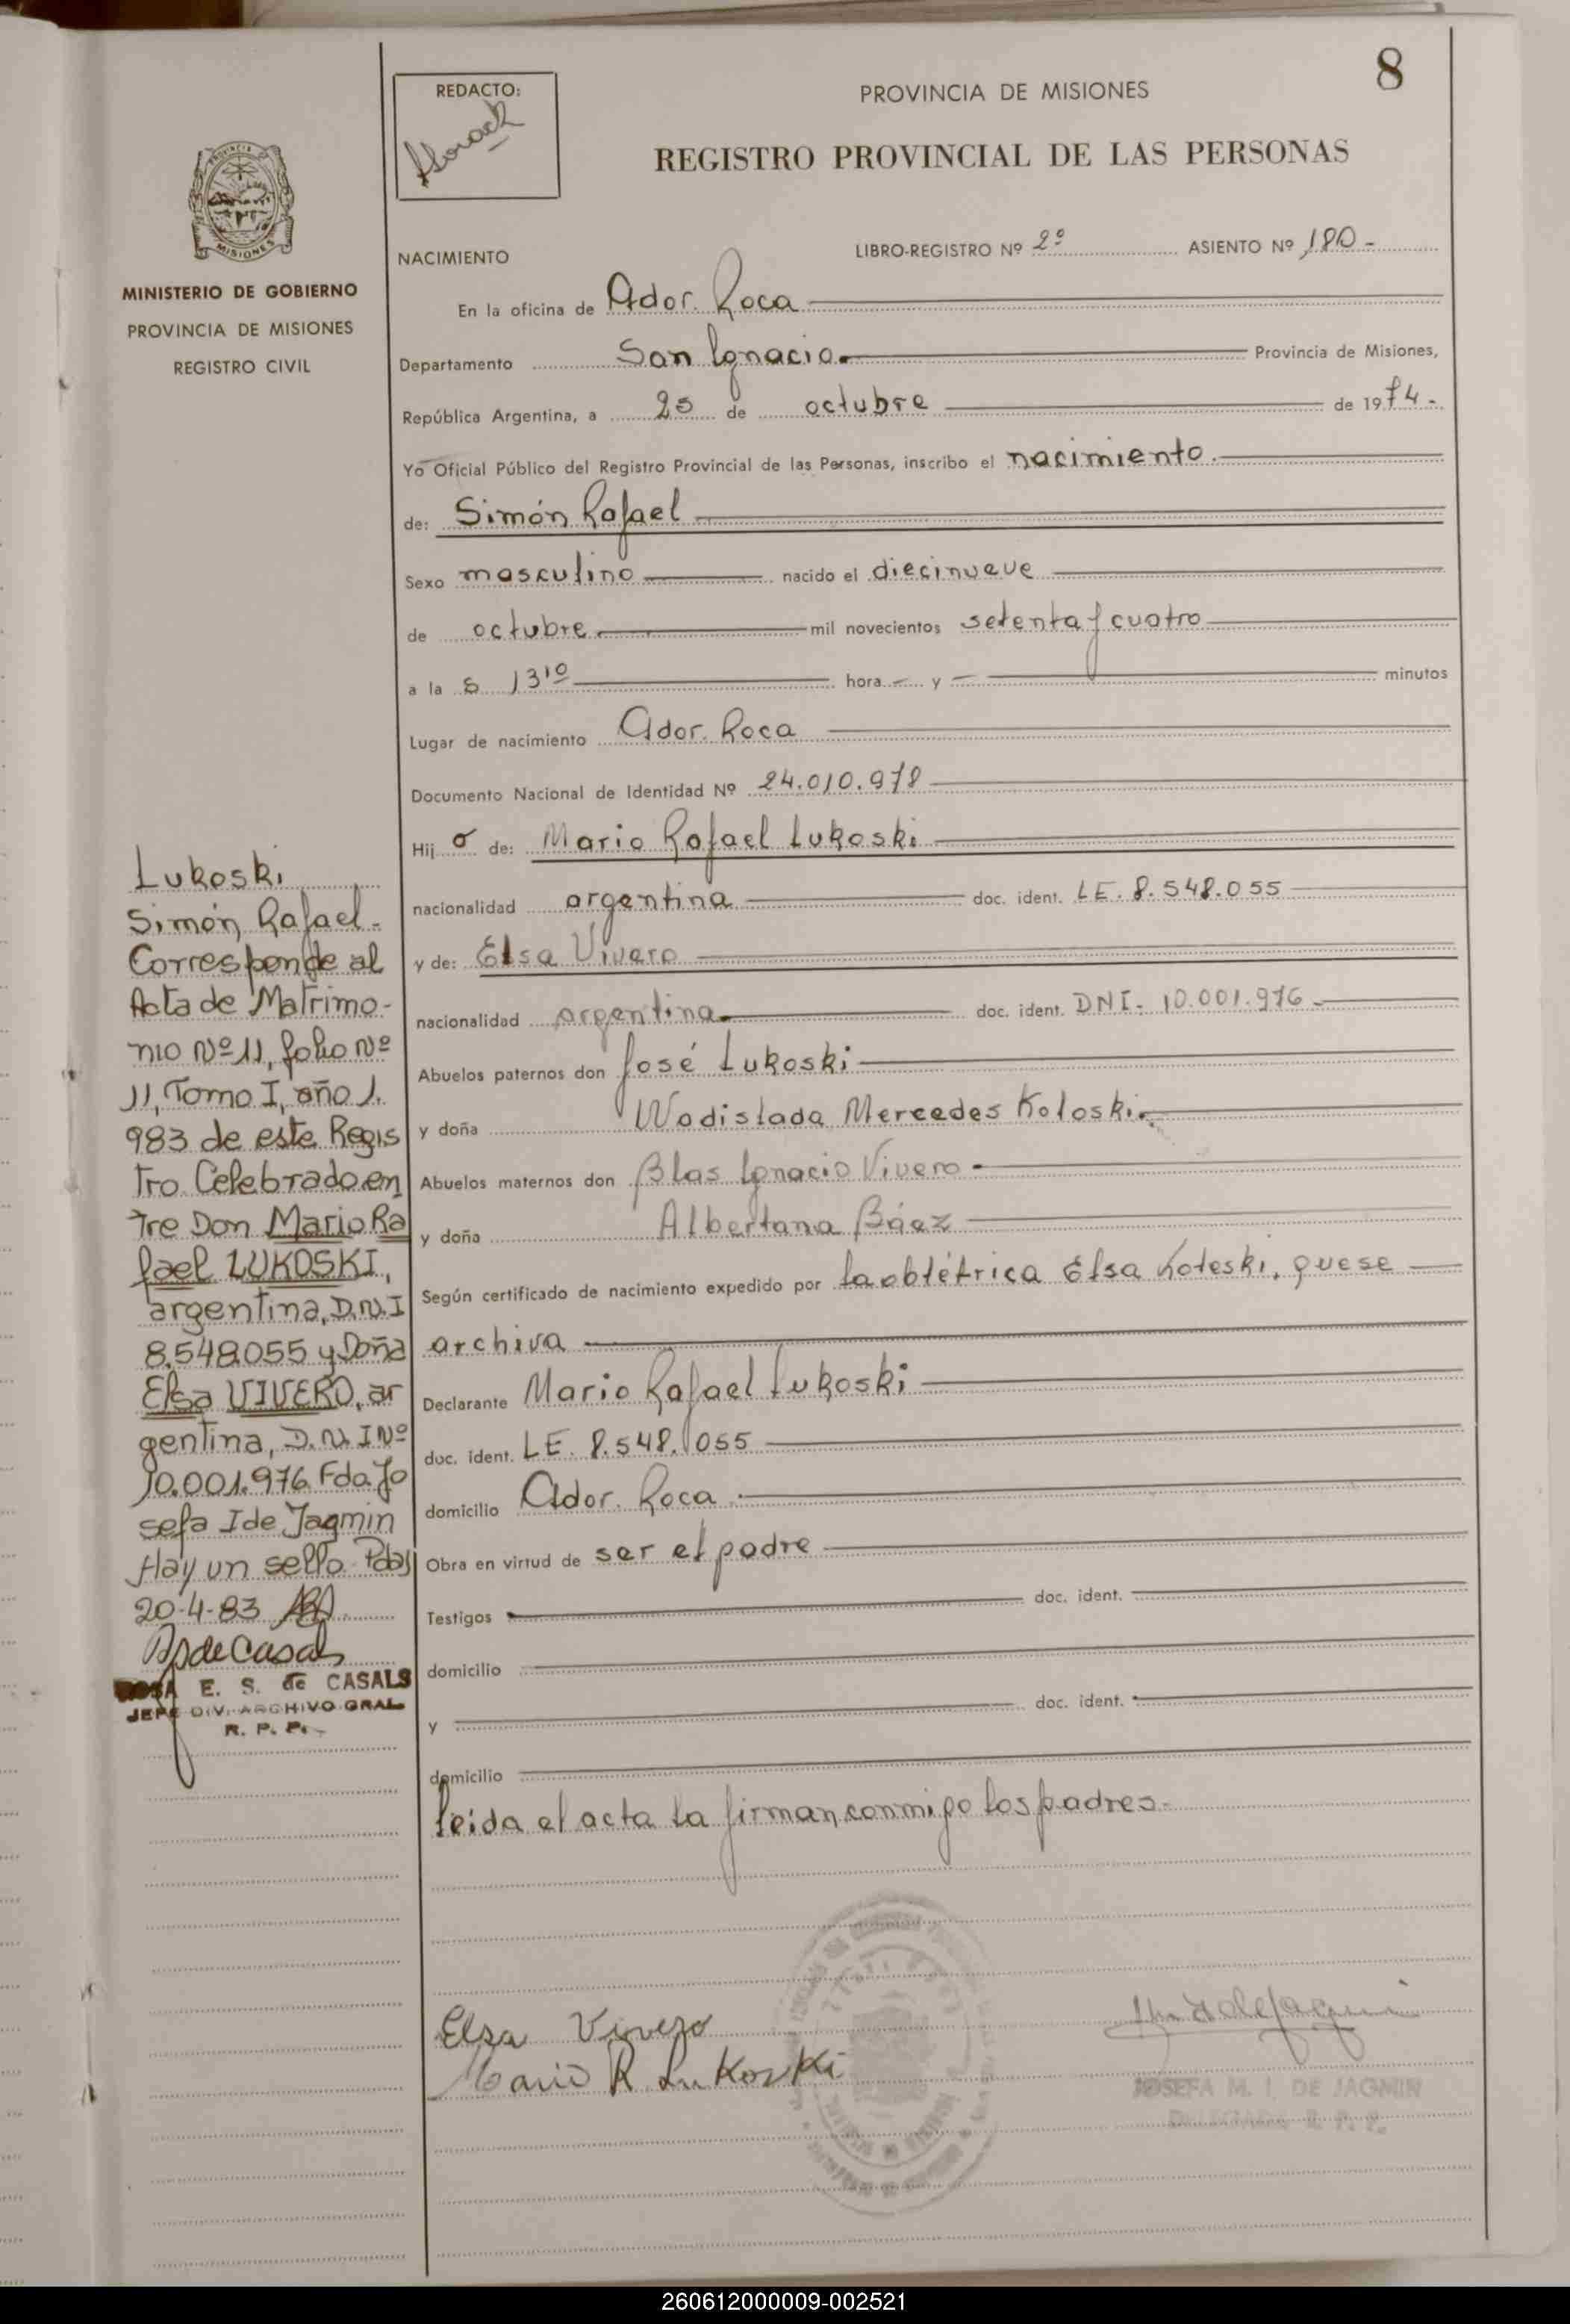 8
REDACTO:
PROVINCIA DE MISIONES
REGISTRO PROVINCIAL DE LAS PERSONAS
PROVINCIA
MISIONES
MINISTERIO DE GOBIERNO
PROVINCIA DE MISIONES
REGISTRO CIVIL
NACIMIENTO
LIBRO-REGISTRO Nº 2º ASIENTO Nº 180-
En la oficina de Ador. Roca
Departamento San Ignacio. Provincia de Misiones,
República Argentina, a 25 de octubre de 1974-
Yo Oficial Público del Registro Provincial de las Personas, inscribo el nacimiento.
de: Simón Rafael
Sexo masculino nacido el diecinueve
de octubre mil novecientos setenta y cuatro
a la s 13¹⁰ hora - y - minutos
Lugar de nacimiento Ador. Roca
Documento Nacional de Identidad Nº 24.010.978
Hij o de: Mario Rafael Lukoski
nacionalidad argentina doc. ident. LE. 8.548.055
y de: Elsa Vivero
nacionalidad argentina doc. ident. DNI- 10.001.976-
Abuelos paternos don José Lukoski
y doña Wadislada Mercedes Koloski.
Abuelos maternos don Blas Ignacio Vivero-
y doña Albertana Báez
Según certificado de nacimiento expedido por la obtétrica Elsa Koteski, que se
archiva
Declarante Mario Rafael Lukoski
doc. ident. LE. 8.548.055
domicilio Ador. Roca.
Obra en virtud de ser el padre
Testigos doc. ident.
domicilio
y doc. ident.
domicilio
leida el acta la firman conmigo los padres-
Elsa Vivero
Mario R. Lukoski
JOSEFA M. I. DE JAGMIN
DELEGADA R. P. P.
Lukoski
Simón Rafael-
Corresponde al
Acta de Matrimo-
nio Nº 11, folio Nº
11, Tomo I, año 1.
983 de este Regis
tro Celebrado en
tre Don Mario Ra
fael LUKOSKI,
argentina, D.N.I
8.548.055 y Doña
Elsa VIVERO, ar
gentina, D.N.I Nº
10.001.976 Fda. Jo
sefa I de Jagmin
Hay un sello. Pdas
20-4-83
E. S. de CASALS
JEFE DIV. ARCHIVO GRAL
R. P. P.
260612000009-002521